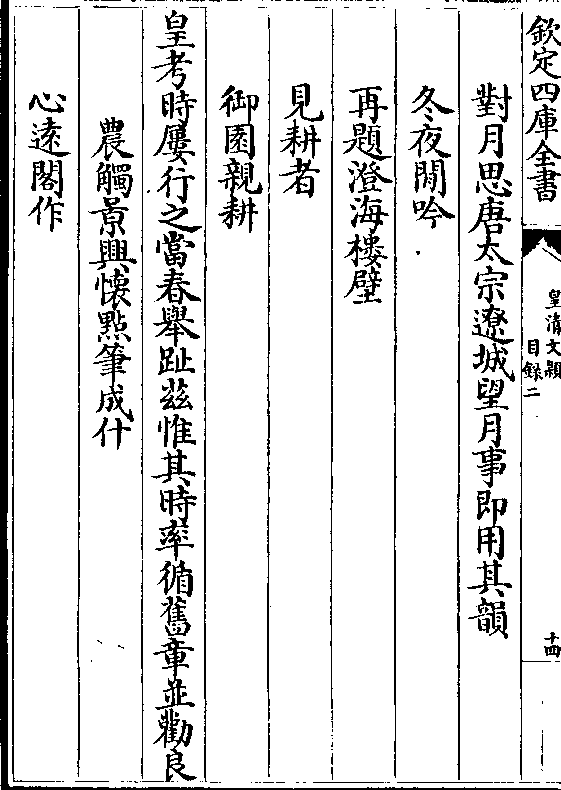 欽定四庫全書
皇清文穎
目録二
十四
對月思唐太宗遼城望月事即用其韻
冬夜閒吟
再題澄海樓壁
見耕者
御園親耕
皇考時屢行之當春舉趾茲惟其時率循舊章並勸良
農觸景興懷點筆成什
心逺閣作